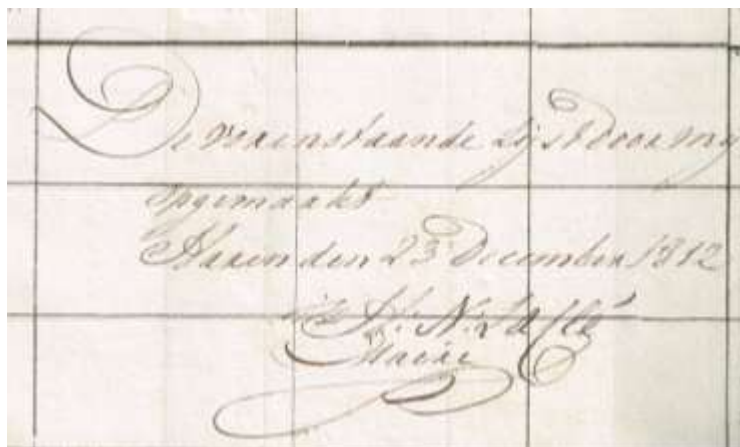 De voorenstaande Lijst door my
opgemaakt
Haren den 23 December 1812
H: N:
Maire